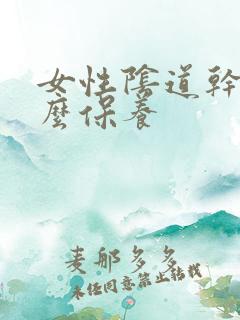 女性陰道幹
麼保養
麦那多多
未经同意禁止转载